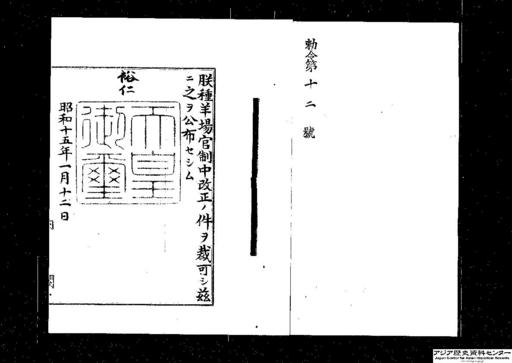 勅令第十二號
朕種羊場官制中改正ノ件ヲ裁可シ茲
ニ之ヲ公布セシム
裕仁
天皇
御璽
昭和十五年一月十二日
内閣
アジア歴史資料センター
Japan Center for Asian Historical Records